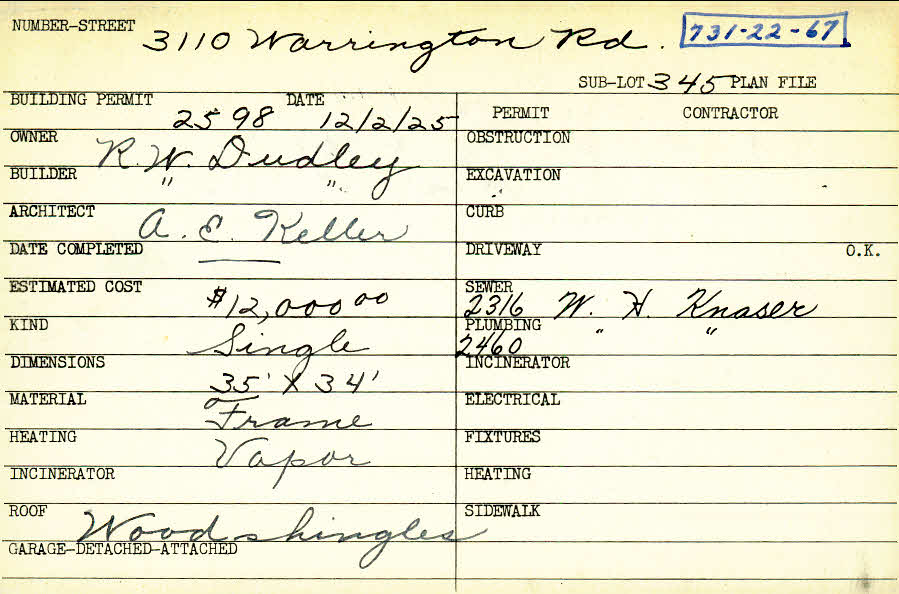 NUMBER-STREET 3110 Warrington Rd. 731-22-67
SUB-LOT 345 PLAN FILE
BUILDING PERMIT 2598 DATE 12/2/25
PERMIT CONTRACTOR
OWNER R.W. Dudley
OBSTRUCTION
BUILDER " "
EXCAVATION
ARCHITECT A. E. Keller
CURB
DATE COMPLETED ———
DRIVEWAY O.K.
ESTIMATED COST $12,000 00
SEWER 2316 W. H. Knaser
KIND Single
PLUMBING 2460 " "
DIMENSIONS 35' X 34'
INCINERATOR
MATERIAL Frame
ELECTRICAL
HEATING Vapor
FIXTURES
INCINERATOR
HEATING
ROOF Wood shingles
SIDEWALK
GARAGE-DETACHED-ATTACHED